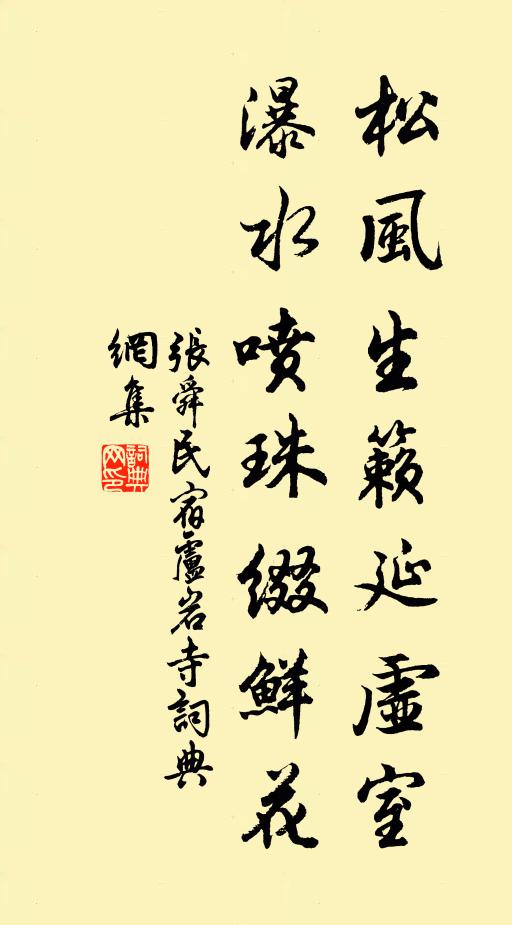 松風生籟延虛室
瀑水噴珠綴鮮花
張舜民宿盧岩寺詞典
網集
詞典
网印